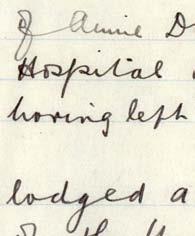 of Annie D
Hospital
having left
lodged a
of the